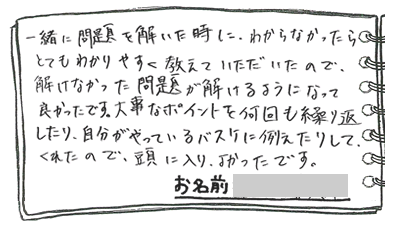 一緒に問題を解いた時に、わからなかったら
とてもわかりやすく教えていただいたので、
解けなかった問題が解けるようになって
良かったです。大事なポイントを何回も繰り返
したり、自分がやっているバスケに例えたりして、
くれたので、頭に入り、よかったです。
お名前